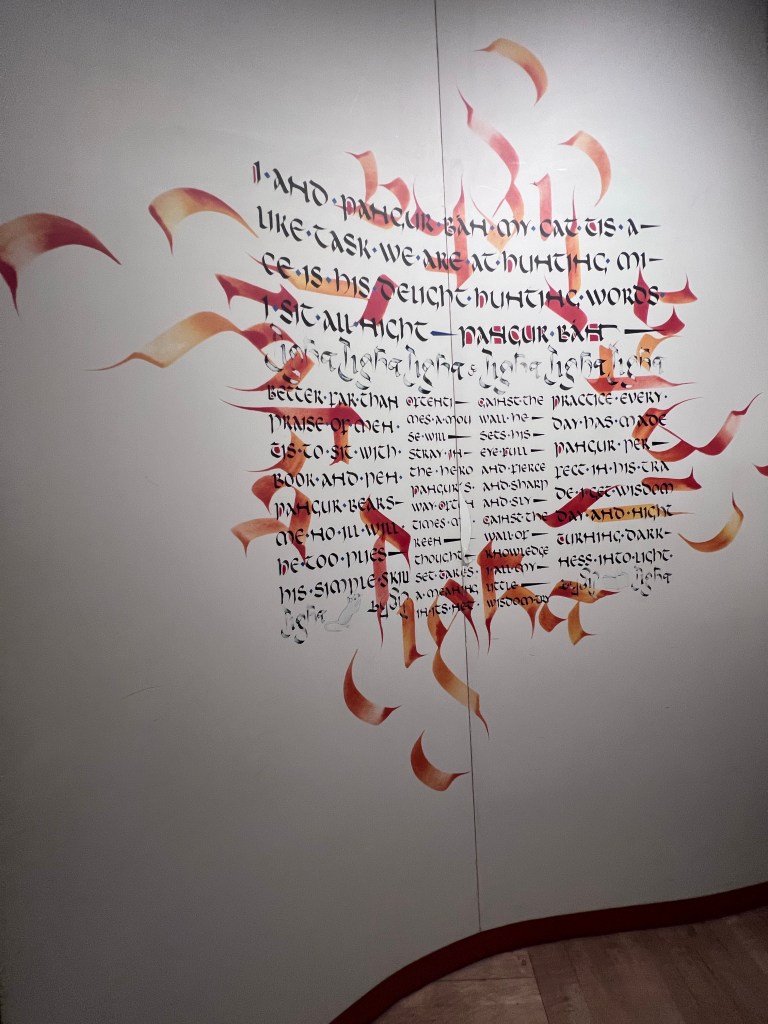 I·AND·PANGUR·BÁN·MY·CAT·TIS·A
LIKE·TASK·WE·ARE·AT·HUNTING·MI
CE·IS·HIS·DELIGHT·HUNTING·WORDS·
I·SIT·ALL·NIGHT PANGUR·BÁN
BETTER·FAR·THAN
PRAISE·OF·MEN·
TIS·TO·SIT·WITH·
BOOK·AND·PEN·
PANGUR·BEARS
ME·NO·ILL·WILL·
HE·TOO·PLIES
HIS·SIMPLE·SKILL
OFTENTI
MES·A·MOU
SE·WILL
STRAY·IN
THE·HERO
PANGUR'S
WAY·OFTN
TIMES·M
KEEN
THOUGHT
SET·TAKES
A·MEANING
IN·ITS·NET·
GAINST·THE
WALL·HE
SETS·HIS
EYE·FULL
AND·FIERCE
AND·SHARP
AND·SLY
GAINST·THE
WALL·OF
KNOWLEDGE
I·ALL·MY
LITTLE
WISDOM·TRY
PRACTICE·EVERY·
DAY·HAS·MADE
PANGUR·PER
FECT·IN·HIS·TRA
DE·I·GET·WISDOM
DAY·AND·NIGHT
TURNING·DARK
NESS·INTO·LIGHT·